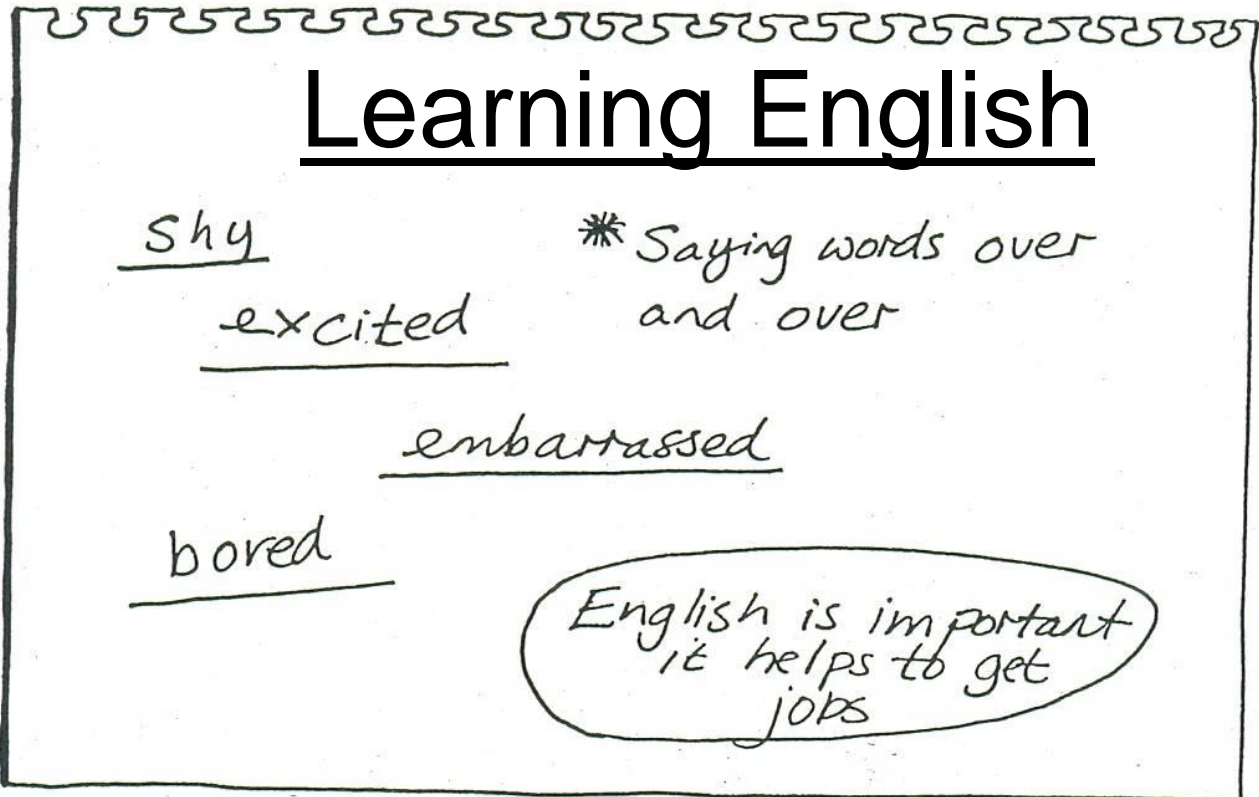 Learning English
shy
* Saying words over
and over
excited
embarrassed
bored
English is important
it helps to get
jobs